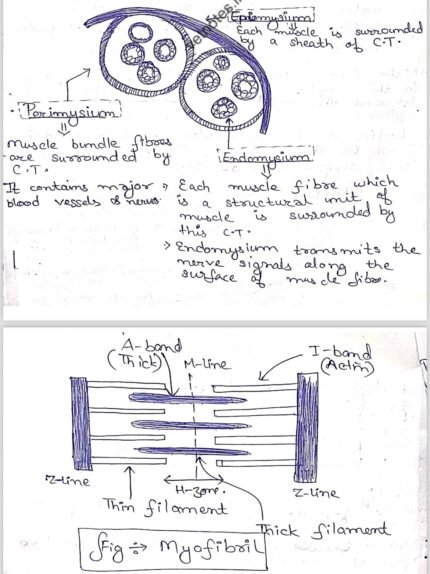 Epimysium
Each muscle is surrounded
by a sheath of C.T.
Perimysium
Muscle bundle fibres
are surrounded by
C.T.
It contains major
blood vessels & nerves
Endomysium
→ Each muscle fibre which
is a structural unit of
muscle is surrounded by
this C.T.
> Endomysium transmits the
nerve signals along the
surface of muscle fibre.
A-band
(Thick)
M-line
I-band
(Actin)
Z-line
H-zone.
Z-line
Thin filament
Thick filament
Fig ÷→ Myofibril